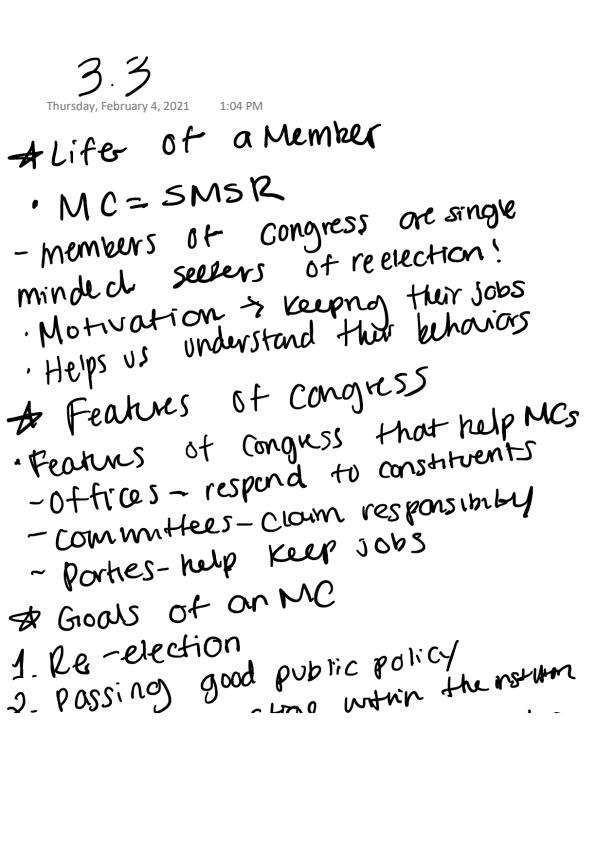 3.3
Thursday, February 4, 2021 1:04 PM
☆ Life of a Member
• MC = SMSR
- members of Congress are single
minded seekers of reelection!
• Motivation → keeping their jobs
• Helps us understand their behaviors
☆ Features of Congress
• Features of Congress that help MCs
- Offices - respond to constituents
- Committees - claim responsibility
~ Parties - help keep jobs
☆ Goals of an MC
1. Re-election
2. Passing good public policy
within the institution